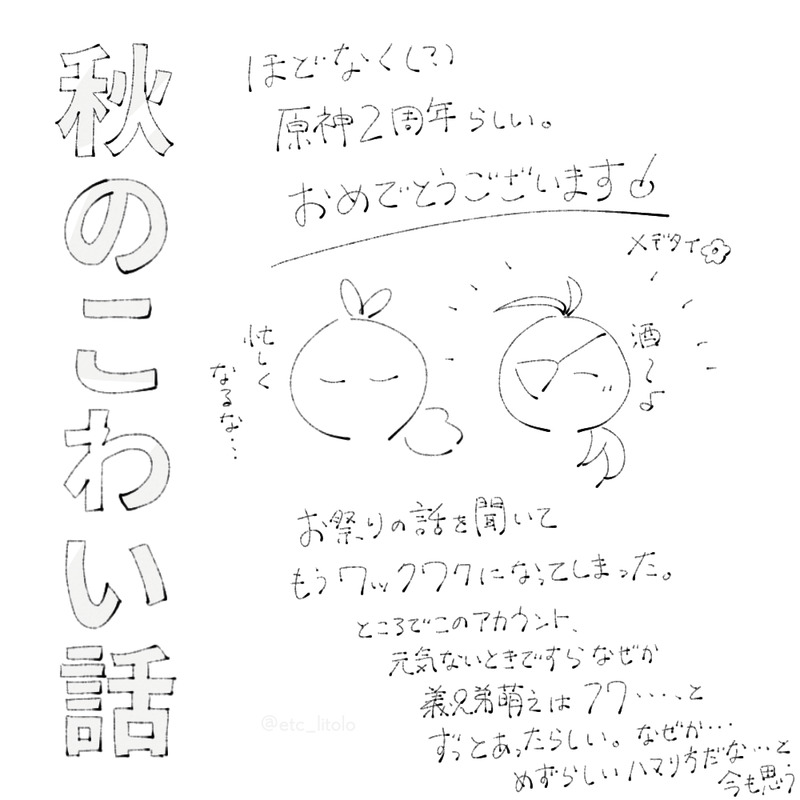 秋のこわい話
ほどなく(?)
原神2周年らしい。
おめでとうございます
メデタイ
忙しく
なるな…
酒〜♪
お祭りの話を聞いて
もうワックワクになってしまった。
ところでこのアカウント、
元気ないときですらなぜか
義兄弟萌えはフワ……と
ずっとあったらしい。なぜか…
めずらしいハマり方だな…と
今も思う
@etc_litolo